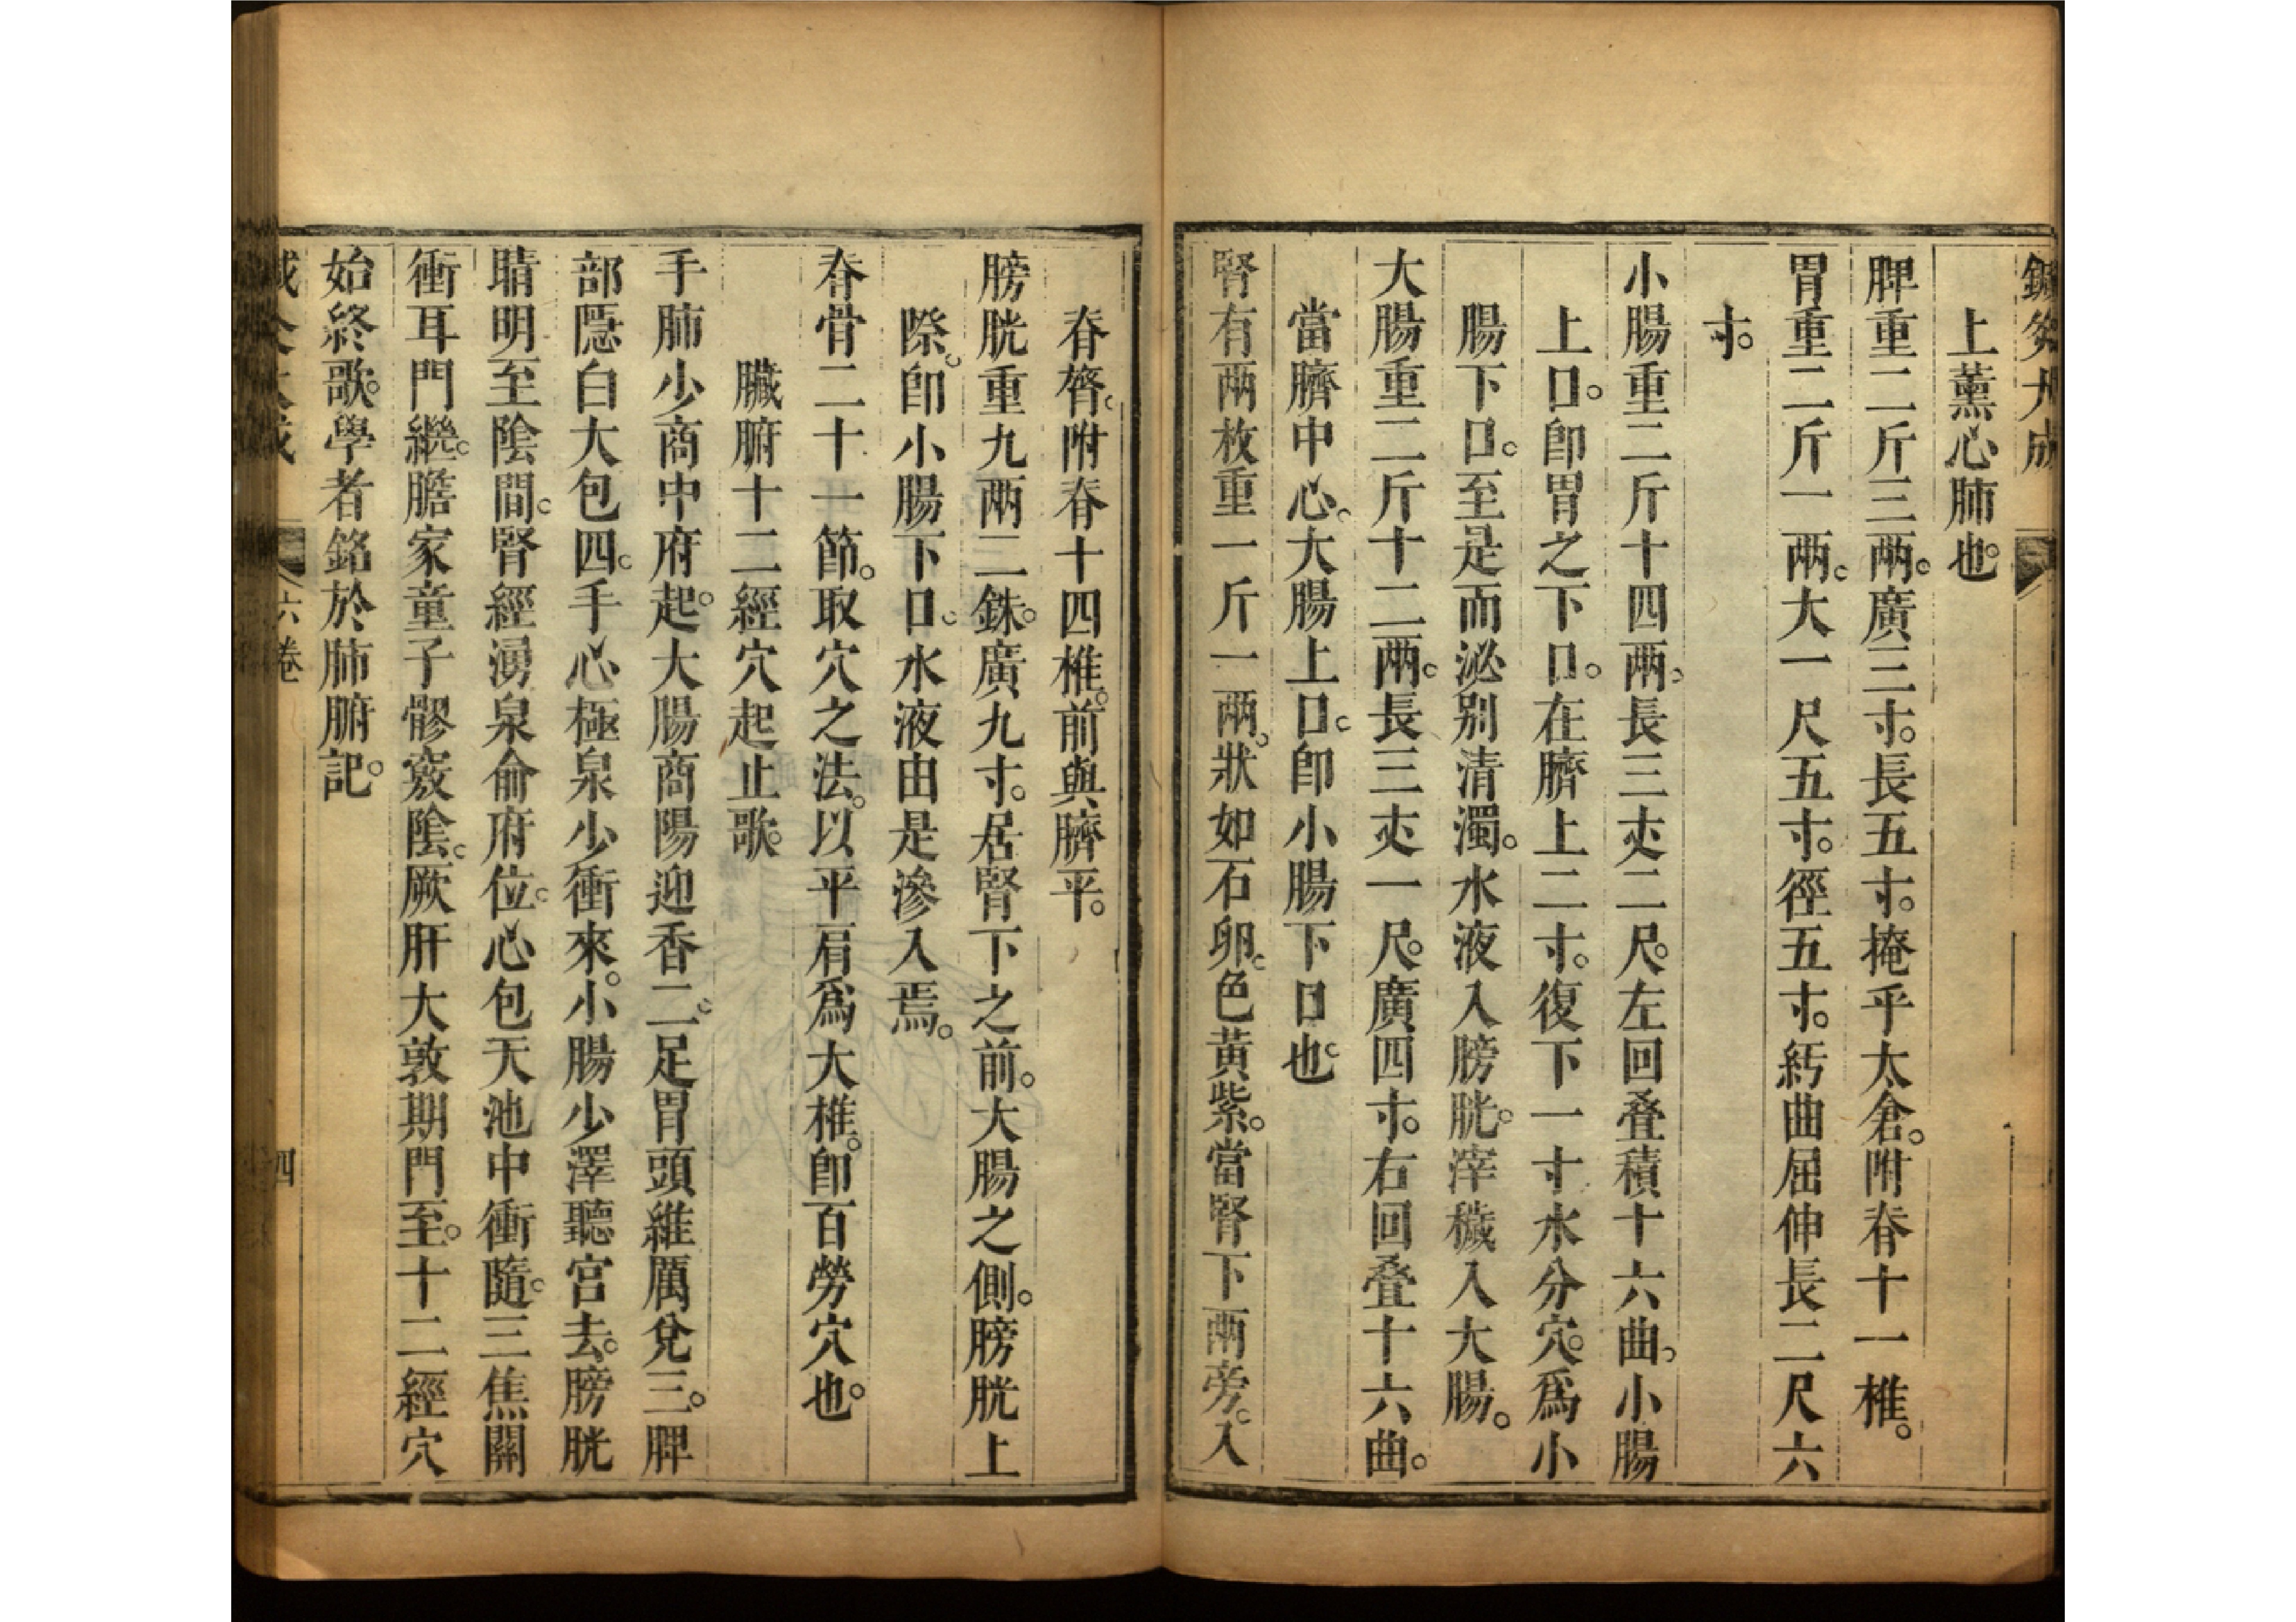 鍼灸大成
上薰心肺也。
脾重二斤三兩。廣三寸。長五寸。掩乎太倉。附脊十一椎。
胃重二斤一兩。大一尺五寸。徑五寸。紆曲屈伸長二尺六
寸。
小腸重二斤十四兩。長三丈二尺。左回叠積十六曲。小腸
上口。卽胃之下口。在臍上二寸。復下一寸水分穴。爲小
腸下口。至是而泌别清濁。水液入膀胱。滓穢入大腸。
大腸重二斤十二兩。長三丈一尺。廣四寸。右回叠十六曲。
當臍中心。大腸上口。卽小腸下口也。
腎有兩枚重一斤一兩。狀如石卵。色黃紫。當腎下兩旁。入
脊膂。附脊十四椎。前與臍平。
膀胱重九兩二銖。廣九寸。居腎下之前。大腸之側。膀胱上
際。卽小腸下口。水液由是滲入焉。
脊骨二十一節。取穴之法。以平肩爲大椎。卽百勞穴也。
臟腑十二經穴起止歌。
手肺少商中府起。大腸商陽迎香二。足胃頭維厲兌三。脾
部隱白大包四。手心極泉少衝來。小腸少澤聽宮去。膀胱
睛明至陰間。腎經湧泉俞府位。心包天池中衝隨。三焦關
衝耳門繼。膽家童子髎竅陰。厥肝大敦期門至。十二經穴
始終歌。學者銘於肺腑記。
六卷
四